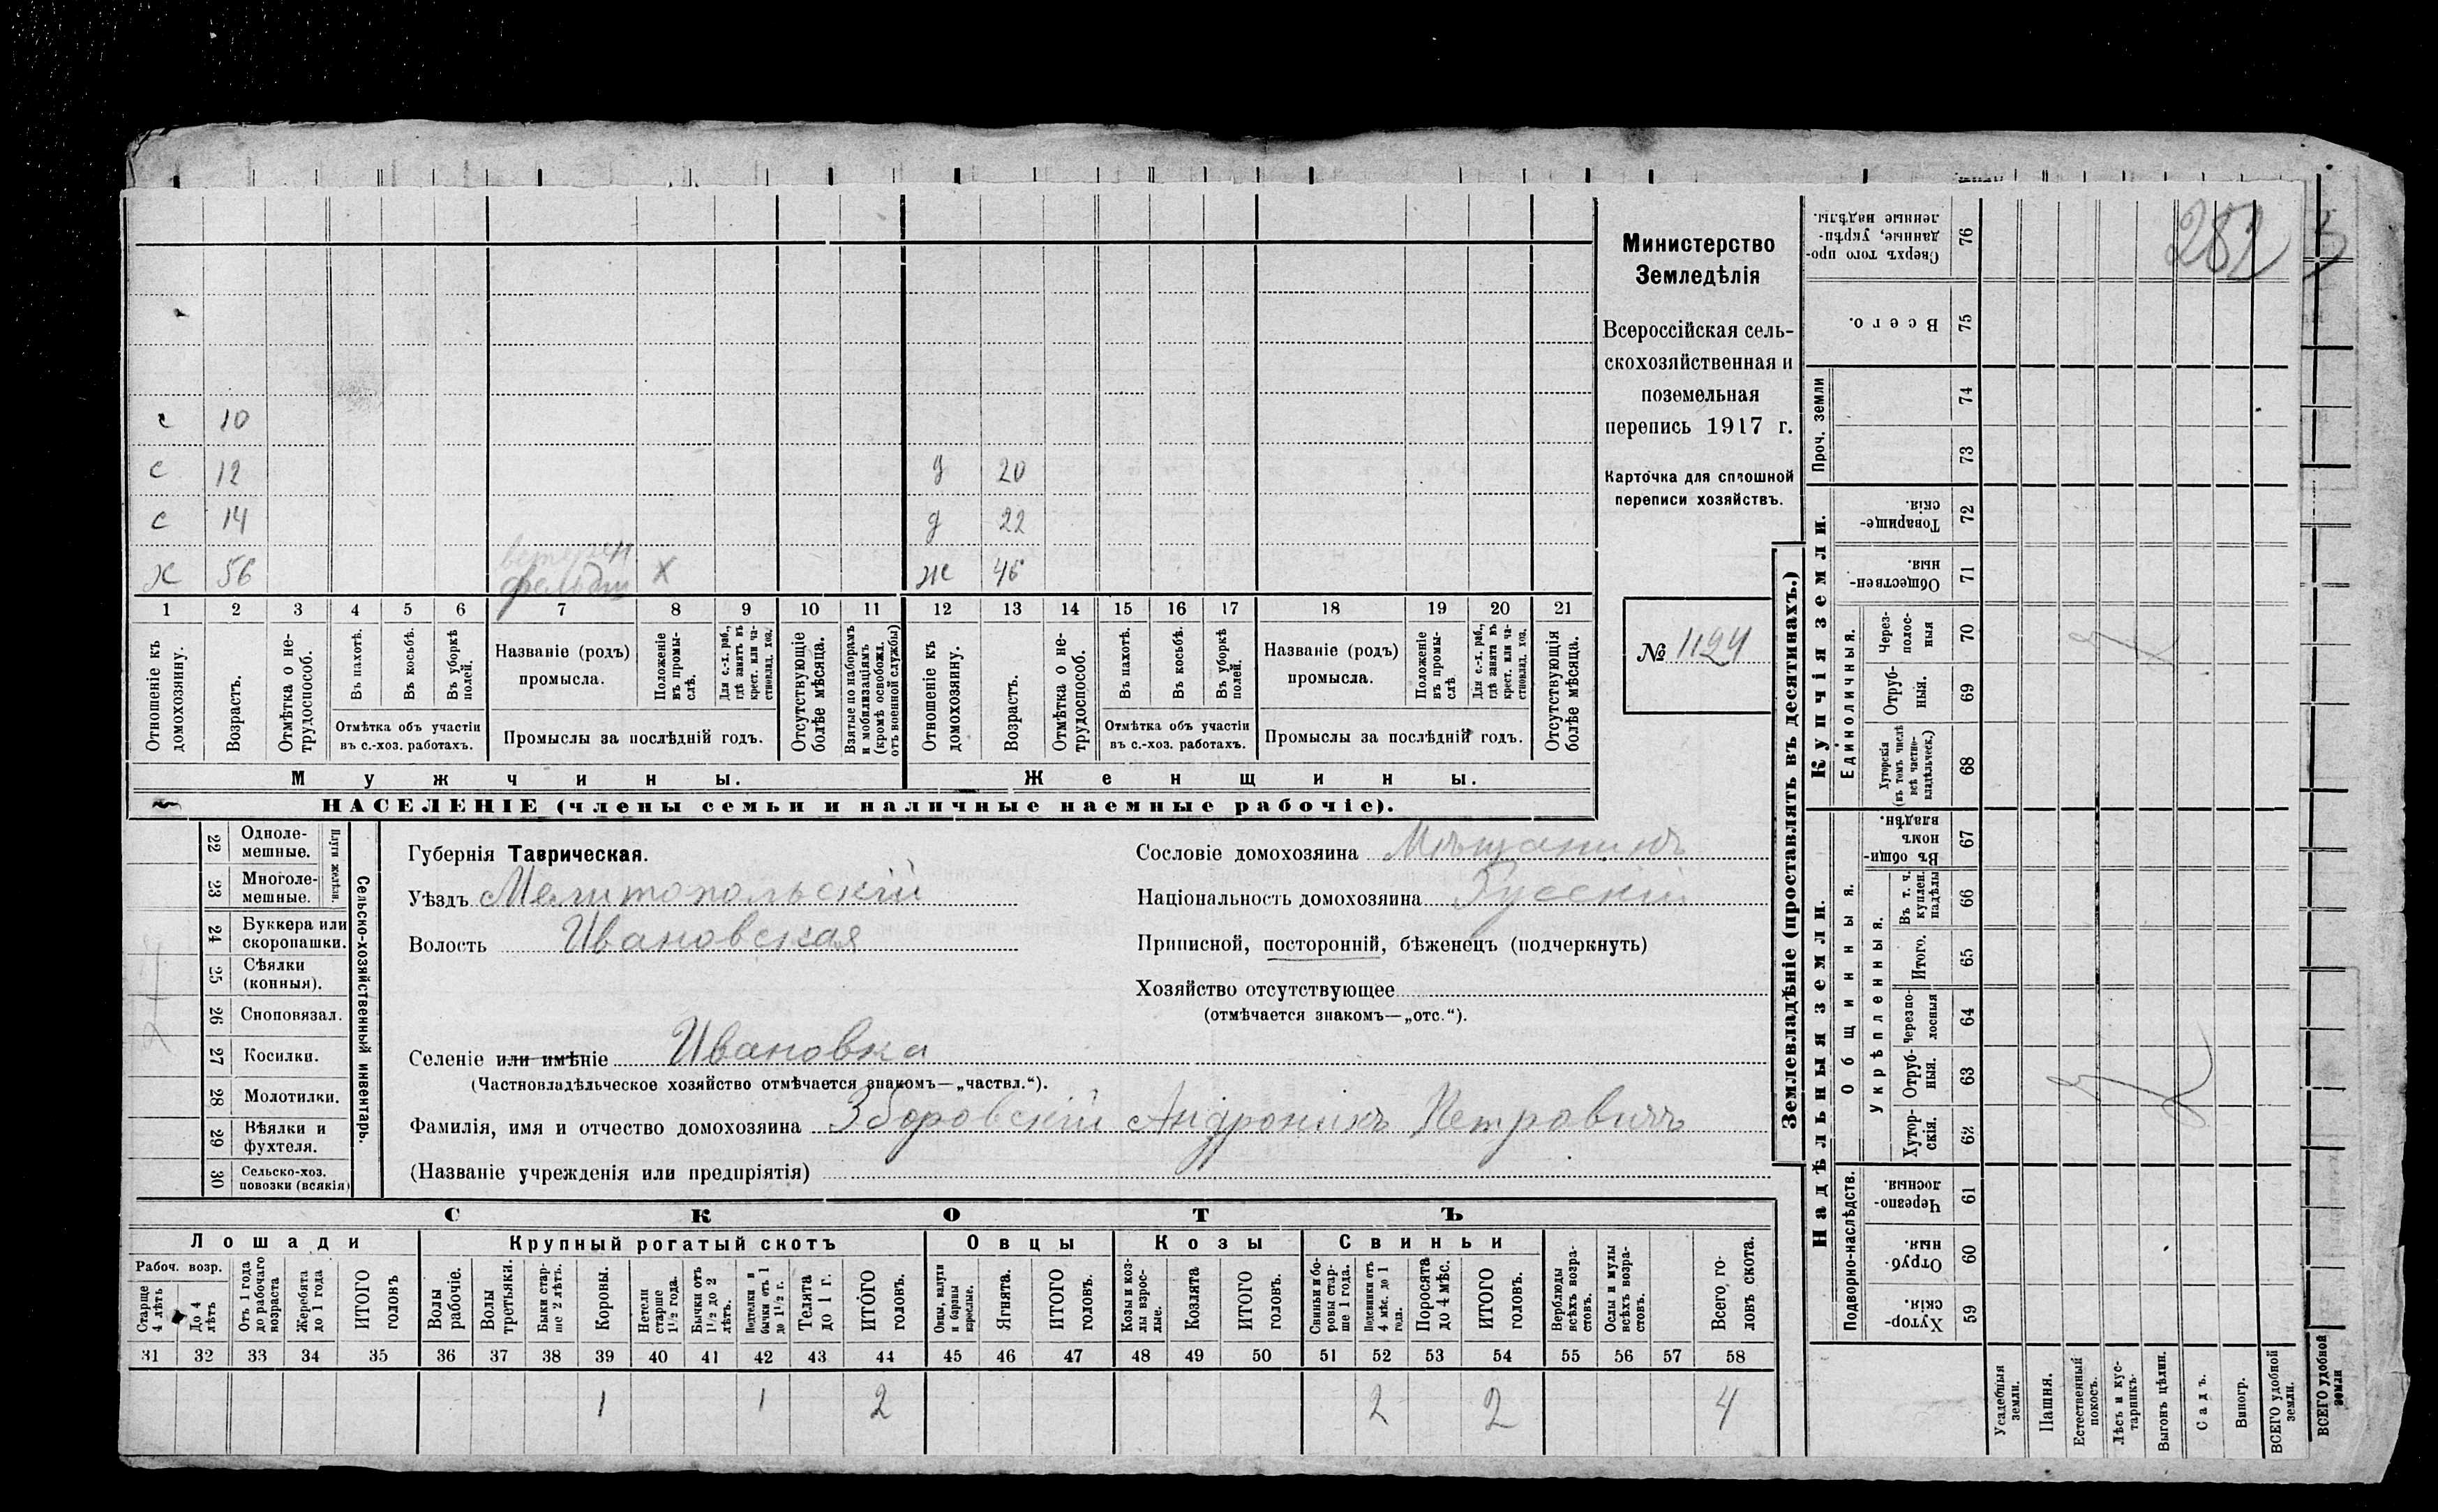 282
с 10
с 12 д 20
с 14 д 22
ветерен
х 56 фельдш х же 46
1 2 3 4 5 6 7 8 9 10 11 12 13 14 15 16 17 18 19 20 21
Отношеніе къ домохозяину.
Возрастъ.
Отмѣтка о не-трудоспособ.
Въ пахотѣ.
Въ косьбѣ.
Въ уборкѣ полей.
Отмѣтка объ участіи
въ с.-хоз. работахъ.
Названіе (родъ)
промысла.
Положеніе въ промы-слѣ.
Для с.-х. раб., гдѣ занятъ въ крест. или ча-стновлад. хоз.
Промыслы за послѣдній годъ.
Отсутствующіе болѣе мѣсяца.
Взятые по наборамъ и мобилизаціямъ (кромѣ освобожд. отъ военной службы)
Отношеніе къ домохозяину.
Возрастъ.
Отмѣтка о не-трудоспособ.
Въ пахотѣ.
Въ косьбѣ.
Въ уборкѣ полей.
Отмѣтка объ участіи
въ с.-хоз. работахъ.
Названіе (родъ)
промысла.
Положеніе въ промы-слѣ
Для с.-х. раб., гдѣ занята въ крест. или ча-стновлад. хоз.
Промыслы за послѣдній годъ.
Отсутствующія болѣе мѣсяца.
Мужчины. Женщины.
НАСЕЛЕНІЕ (члены семьи и наличные наемные рабочіе).
Министерство
Земледѣлія
Всероссійская сель-
скохозяйственная и
поземельная
перепись 1917 г.
Карточка для сплошной
переписи хозяйствъ.
№ 1124
22 Одноле-мешные.
23 Многоле-мешные.
Плуги желѣзн.
24 Буккера или скоропашки.
25 Сѣялки (конныя).
26 Сноповязал.
27 Косилки.
28 Молотилки.
29 Вѣялки и фухтеля.
30 Сельско-хоз. повозки (всякія)
Сельско-хозяйственный инвентарь.
Губернія Таврическая.
Уѣздъ Мелитопольскій
Волость Ивановская
Сословіе домохозяина Мѣщанинъ
Національность домохозяина Русскій
Приписной, посторонній, бѣженецъ (подчеркнуть)
Хозяйство отсутствующее
(отмѣчается знакомъ—„отс.“).
Селеніе или имѣніе Ивановка
(Частновладѣльческое хозяйство отмѣчается знакомъ—„частвл.“).
Фамилія, имя и отчество домохозяина Зборовскій Андроникъ Петровичъ
(Названіе учрежденія или предпріятія)
СКОТЪ
Лошади Крупный рогатый скотъ Овцы Козы Свиньи
Рабоч. возр.
Старше 4 лѣтъ
До 4 лѣтъ
Отъ 1 года до рабочаго возраста
Жеребята до 1 года
ИТОГО головъ
Волы рабочіе.
Волы третьяки.
Быки стар-ше 2 лѣтъ.
Коровы.
Нетели старше 1½ года.
Бычки отъ 1½ до 2 лѣтъ.
Подтелки и бычки отъ 1 до 1½ г.
Телята до 1 г.
ИТОГО головъ.
Овцы, валухи и бараны взрослые.
Ягнята.
ИТОГО головъ.
Козы и коз-лы взрос-лые.
Козлята
ИТОГО головъ.
Свиньи и бо-ровы стар-ше 1 года.
Подсвинки отъ 4 мѣс. до 1 года.
Поросята до 4 мѣс.
ИТОГО головъ.
Верблюды всѣхъ возра-стовъ.
Ослы и мулы всѣхъ возра-стовъ.
Всего го-ловъ скота.
31 32 33 34 35 36 37 38 39 40 41 42 43 44 45 46 47 48 49 50 51 52 53 54 55 56 57 58
1 1 2 2 2 4
Землевладѣніе (проставлять въ десятинахъ.)
Сверхъ того про-данные, укрѣп-ленные надѣлы. 76
Всего. 75
Проч. земли
74
73
Купчія земли.
Товарище-скія. 72
Обществен-ныя. 71
Единоличныя.
Через-полос-ныя 70
Отруб-ныя. 69
Хуторскія (въ томъ числѣ всѣ частно-владѣльческ.) 68
Надѣльныя земли.
Общинныя.
Въ общи-номъ владѣн. 67
Укрѣпленныя.
Въ т. ч. куплен. надѣлы 66
Итого. 65
Черезпо-лосныя 64
Отруб-ныя. 63
Хутор-скія. 62
Подворно-наслѣдств.
Черезпо-лосныя. 61
Отруб-ныя. 60
Хутор-скія. 59
Усадебныя земли.
Пашня.
Естественный покосъ.
Лѣсъ и кус-тарникъ.
Выгонъ цѣлин.
Садъ.
Виногр.
ВСЕГО удобной земли.
ВСЕГО удобной земли